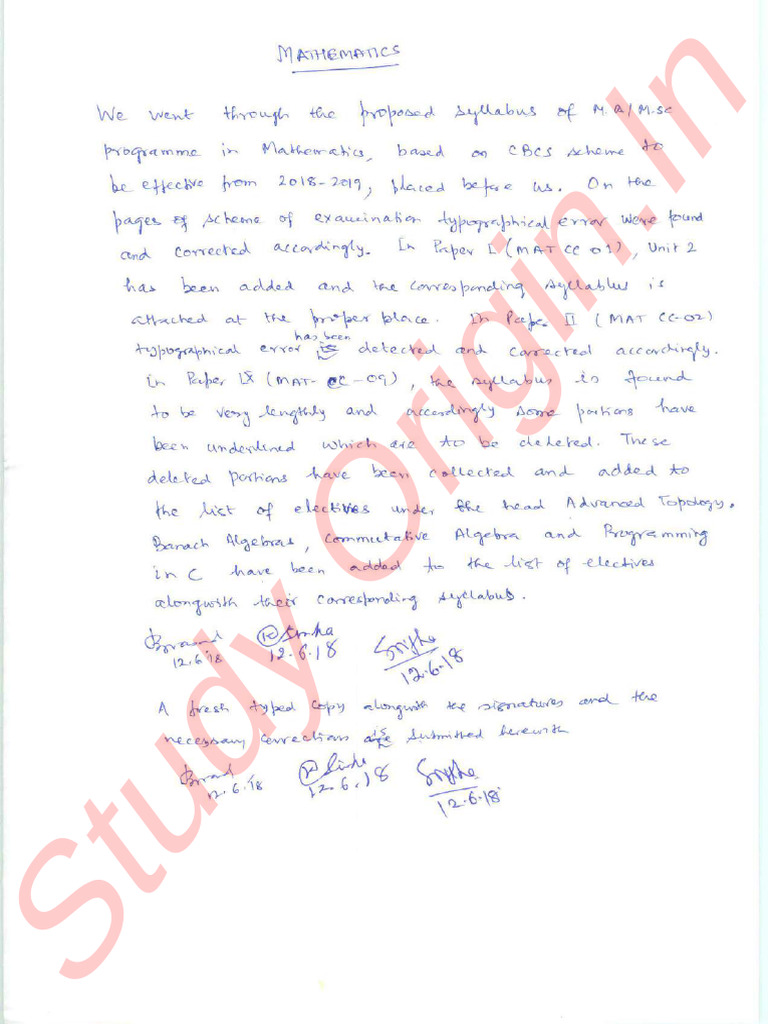 MATHEMATICS
We went through the proposed syllabus of M.A/M.Sc
programme in Mathematics, based on CBCS scheme to
be effective from 2018-2019, placed before us. On the
pages of scheme of examination typographical error were found
and corrected accordingly. In Paper I (MAT CC 01), Unit 2
has been added and the corresponding syllablus is
attached at the proper place. In Paper II (MAT CC-02)
has been
typographical error is detected and corrected accordingly.
in Paper IX (MAT-CC-09), the syllabus is found
to be very lengthly and accordingly some portions have
been underlined which are to be deleted. These
deleted portions have been collected and added to
the list of electives under the head Advanced Topology.
Banach Algebras, Commutative Algebra and Programming
in C have been added to the list of electives
alongwith their corresponding syllabus.
12.6.18 12.6.18 12.6.18
A fresh typed copy alongwith the signatures and the
necessary corrections is submitted herewith
12.6.18 12.6.18 12.6.18
Study Origin.In